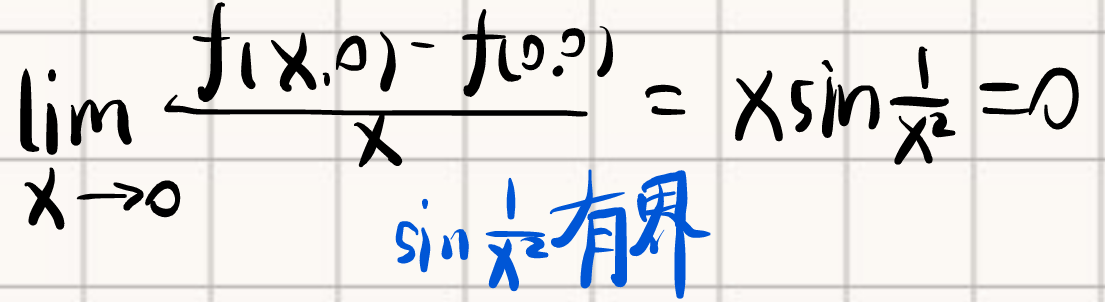 lim x→0 (f(x,0) - f(0,0))/x = x sin 1/x² = 0
sin 1/x² 有界